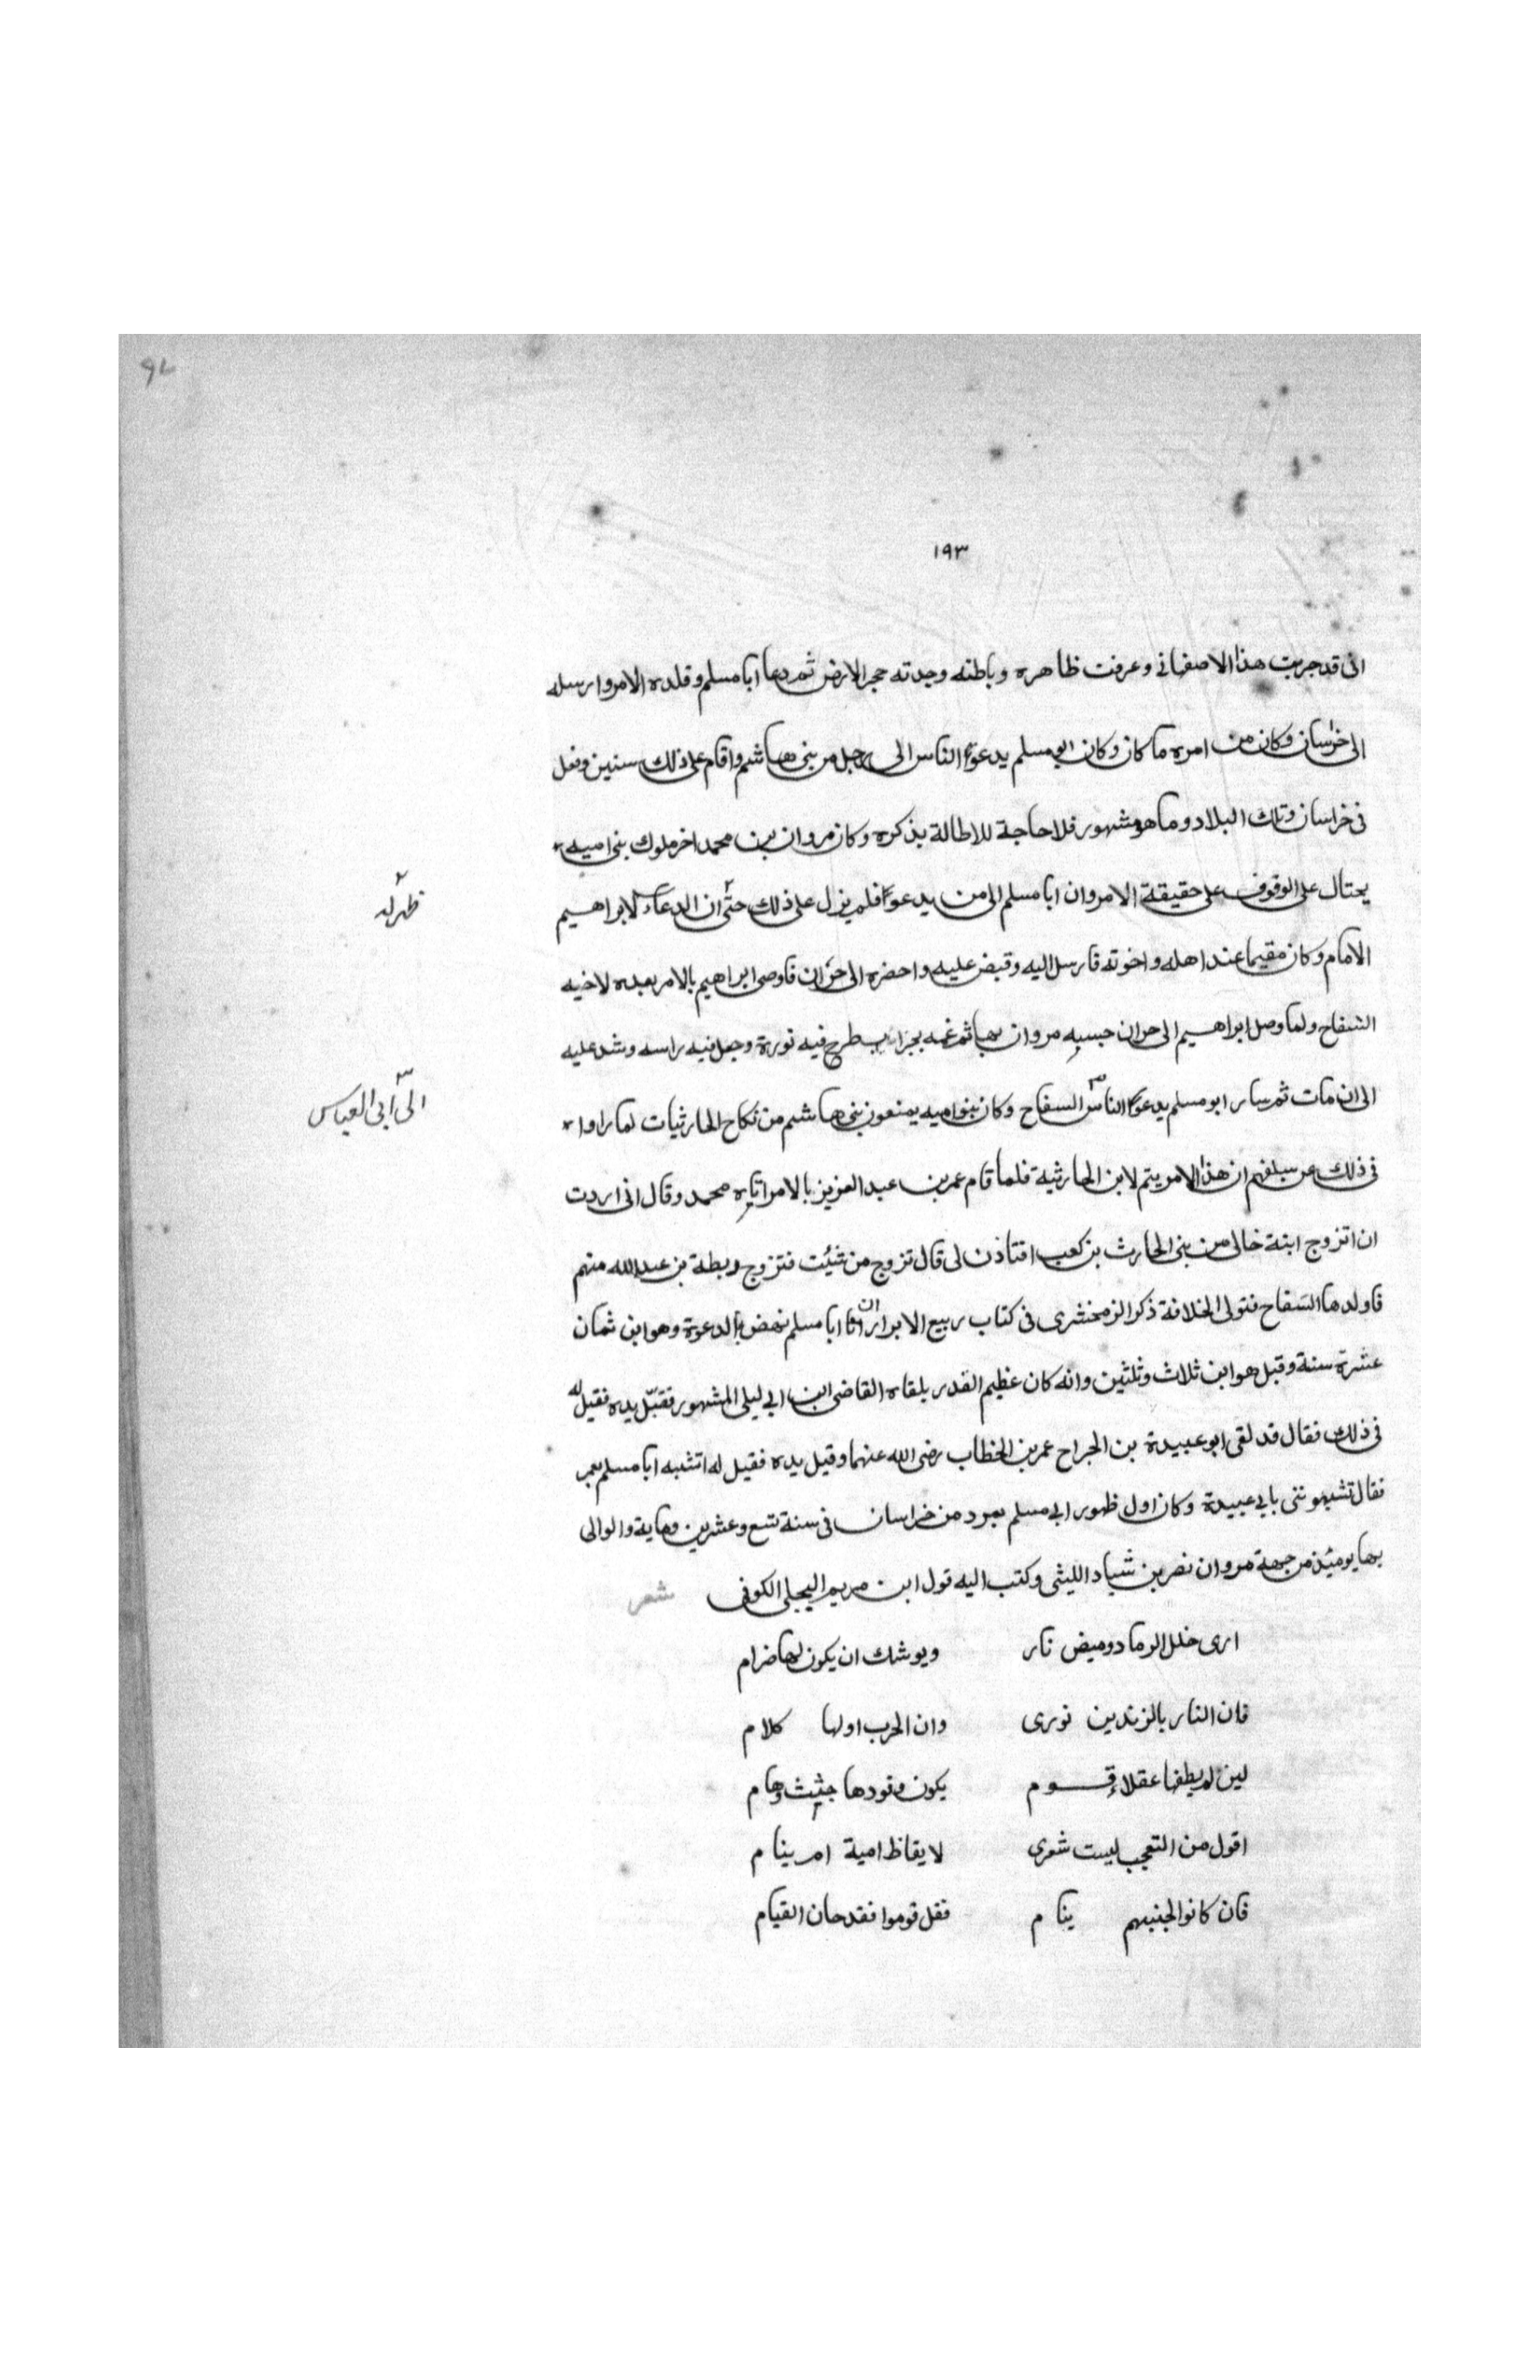 ١٩٣
انى قد جربت هذا الاصفهانى وعرفت ظاهره وباطنه وجدته حجر الارض ثم دعا ابا مسلم وقلده الامر وارسله
الى خراسان وكان من امره ما كان وكان ابو مسلم يدعوا الناس الى رجل من بنى هاشم واقام على ذلك سنين وفعل
فى خراسان وتلك البلاد وما هو مشهور فلا حاجة للاطالة بذكره وكان مروان بن محمد اخر ملوك بنى اميه
يحتال على الوقوف على حقيقة الامر وان ابا مسلم الى من يدعوا فلم يزل على ذلك حتى ٢ ان الدعاء لابراهيم
٢ ظهر له
الامام وكان مقيما عند اهله واخوته فارسل اليه وقبض عليه واحضره الى حران فاوصى ابراهيم بالامر بعده لاخيه
السفاح ولما وصل ابراهيم الى حران حبسه مروان بها ثم غمه بجراب طرح فيه نورة وجعل فيه راسه وشد عليه
الى ان مات ثم سار ابو مسلم يدعوا الناس ٣ السفاح وكان بنو اميه يمنعون بنى هاشم من نكاح الحارثيات لما راوا
٣ الى ابى العباس
فى ذلك عن سلفهم ان هذا الامر يتم لابن الحارثية فلما قام عمر بن عبد العزيز بالامر اتاه محمد وقال انى اردت
ان اتزوج ابنة خالى من بنى الحارث بن كعب افتاذن لى قال تزوج من شئت فتزوج ريطة بن عبد الله منهم
فاولدها السفاح فتولى الخلافة ذكر الزمخشرى فى كتاب ربيع الابرار ان ابا مسلم نهض بالدعوة وهو ابن ثمان
عشرة سنة وقبل هو ابن ثلاث وثلثين وانه كان عظيم القدر يلقاه القاضى ابن ابى ليلى المشهور فقبّل يده فقيل له
فى ذلك فقال قد لقى ابو عبيدة بن الجراح عمر بن الخطاب رضى الله عنهما وقبل يده فقيل له اتشبه ابا مسلم بعمر
فقال تشبهوننى بابى عبيدة وكان اول ظهور ابى مسلم بمرد من خراسان فى سنة تسع وعشرين وماية والوالى
بها يومئذ من جهة مروان نصر بن شياد الليثى وكتب اليه قول ابن مريم البجلى الكوفى شعر
ارى خلل الرماد وميض نار ويوشك ان يكون لها ضرام
فان النار بالزندين تورى وان الحرب اولها كلام
لين لم يطفها عقلاء قوم يكون وقودها جثث وهام
اقول من التعجب ليت شعرى لايقاظ امية ام ينام
فان كانوا لجنبهم ينام فقل قوموا فقد حان القيام